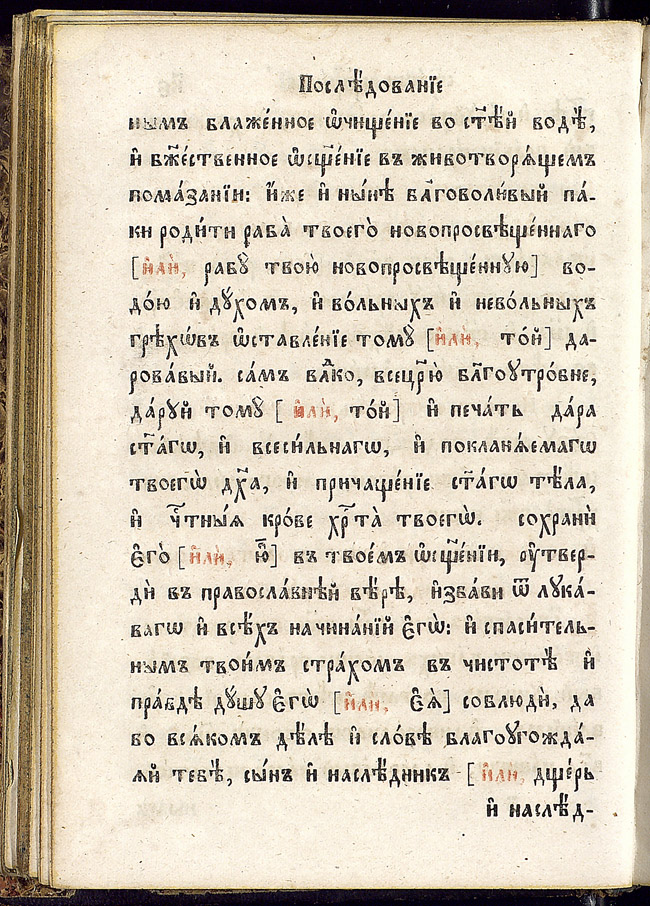 Послѣ́дованїе
нымъ блаже́нное ѡ҆чище́нїе во ст҃ѣ́й водѣ̀,
и҆ бж҃е́ственное ѡ҆сщ҃е́нїе въ животворѧ́щемъ
пома́занїи: и҆́же и҆ ны́нѣ бл҃говоли́вый па́-
ки роди́ти раба̀ твоего̀ новопросвѣще́ннаго
[и҆лѝ, рабꙋ̀ твою̀ новопросвѣще́ннꙋю] во-
до́ю и҆ дꙋ́хомъ, и҆ во́льныхъ и҆ нево́льныхъ
грѣхѡ́въ ѡ҆ставле́нїе томꙋ̀ [и҆лѝ, то́й] да-
рова́вый. са́мъ влⷣко, всецр҃ю̀ бл҃гоꙋтро́бне,
да́рꙋй томꙋ̀ [и҆лѝ, то́й] и҆ печа́ть да́ра
ст҃а́гѡ, и҆ всеси́льнагѡ, и҆ покланѧ́емагѡ
твоегѡ̀ дх҃а, и҆ причаще́нїе ст҃а́гѡ тѣ́ла,
и҆ чⷭ҇тны́ѧ кро́ве хрⷭ҇та̀ твоегѡ̀. сохранѝ
є҆го̀ [и҆лѝ, ю҆̀] въ твое́мъ ѡ҆сщ҃е́нїи, оу҆твер-
дѝ въ правосла́внѣй вѣ́рѣ, и҆зба́ви ѿ лꙋка́-
вагѡ и҆ всѣ́хъ начина́нїй є҆гѡ̀: и҆ спаси́тель-
нымъ твои́мъ стра́хомъ въ чистотѣ̀ и҆
пра́вдѣ дꙋ́шꙋ є҆гѡ̀ [и҆лѝ, є҆ѧ̀] соблюдѝ, да
во всѧ́комъ дѣ́лѣ и҆ сло́вѣ благоꙋгожда́-
ѧй тебѣ̀, сы́нъ и҆ наслѣ́дникъ [и҆лѝ, дще́рь
и҆ наслѣ́д-